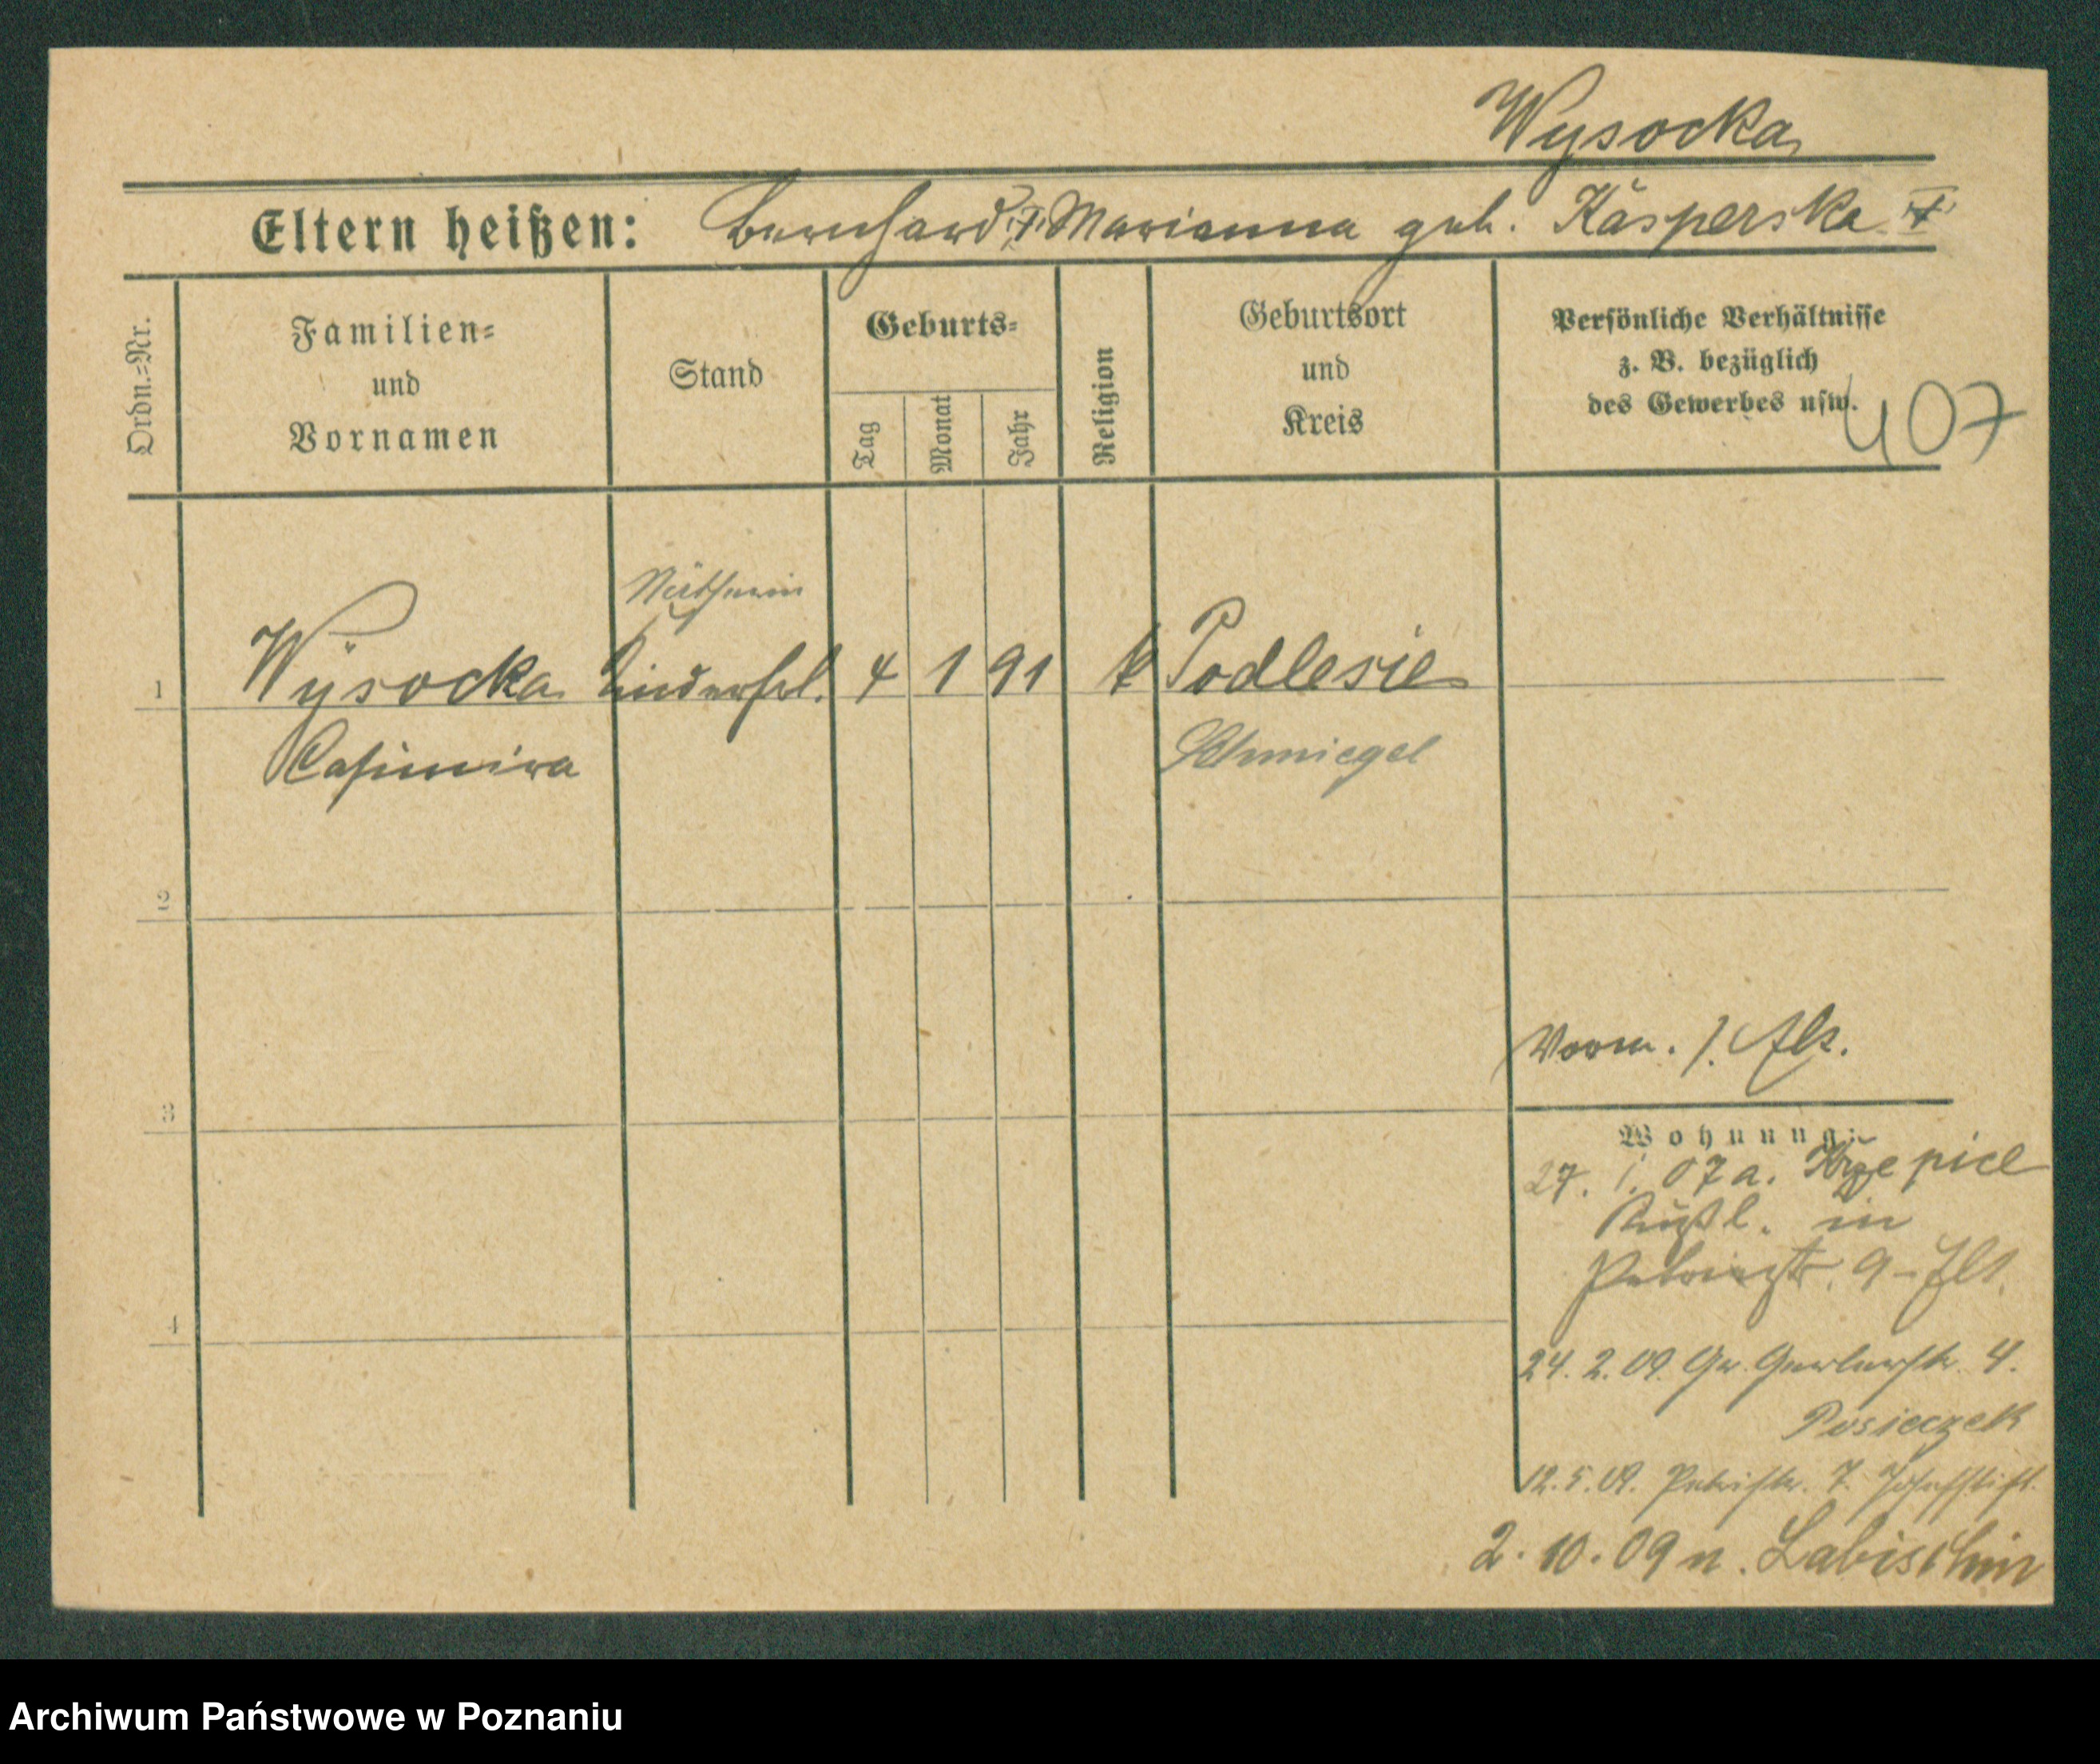 Wysocka
Eltern heißen: Bernhard † Marianna geb. Kasperska †
Ordn.=Nr.
Familien=
und
Vornamen
Stand
Geburts=
Tag
Monat
Jahr
Religion
Geburtsort
und
Kreis
Persönliche Verhältnisse
z. B. bezüglich
des Gewerbes usw.
407
Nätherin
1 Wysocka Kinderfrl. 4 1 91 k Podlesie
Casimira Schmiegel
2
3
4
Vorm.
Wohnung:
27. 1. 07 a. Krzepice
Rußl. in
Petristr. 9
24. 2. 09. Gr. Gerberstr. 4.
Posieczek
12. 5. 09. Petristr. 7. Josefstift.
2. 10. 09 n. Labischin
Archiwum Państwowe w Poznaniu